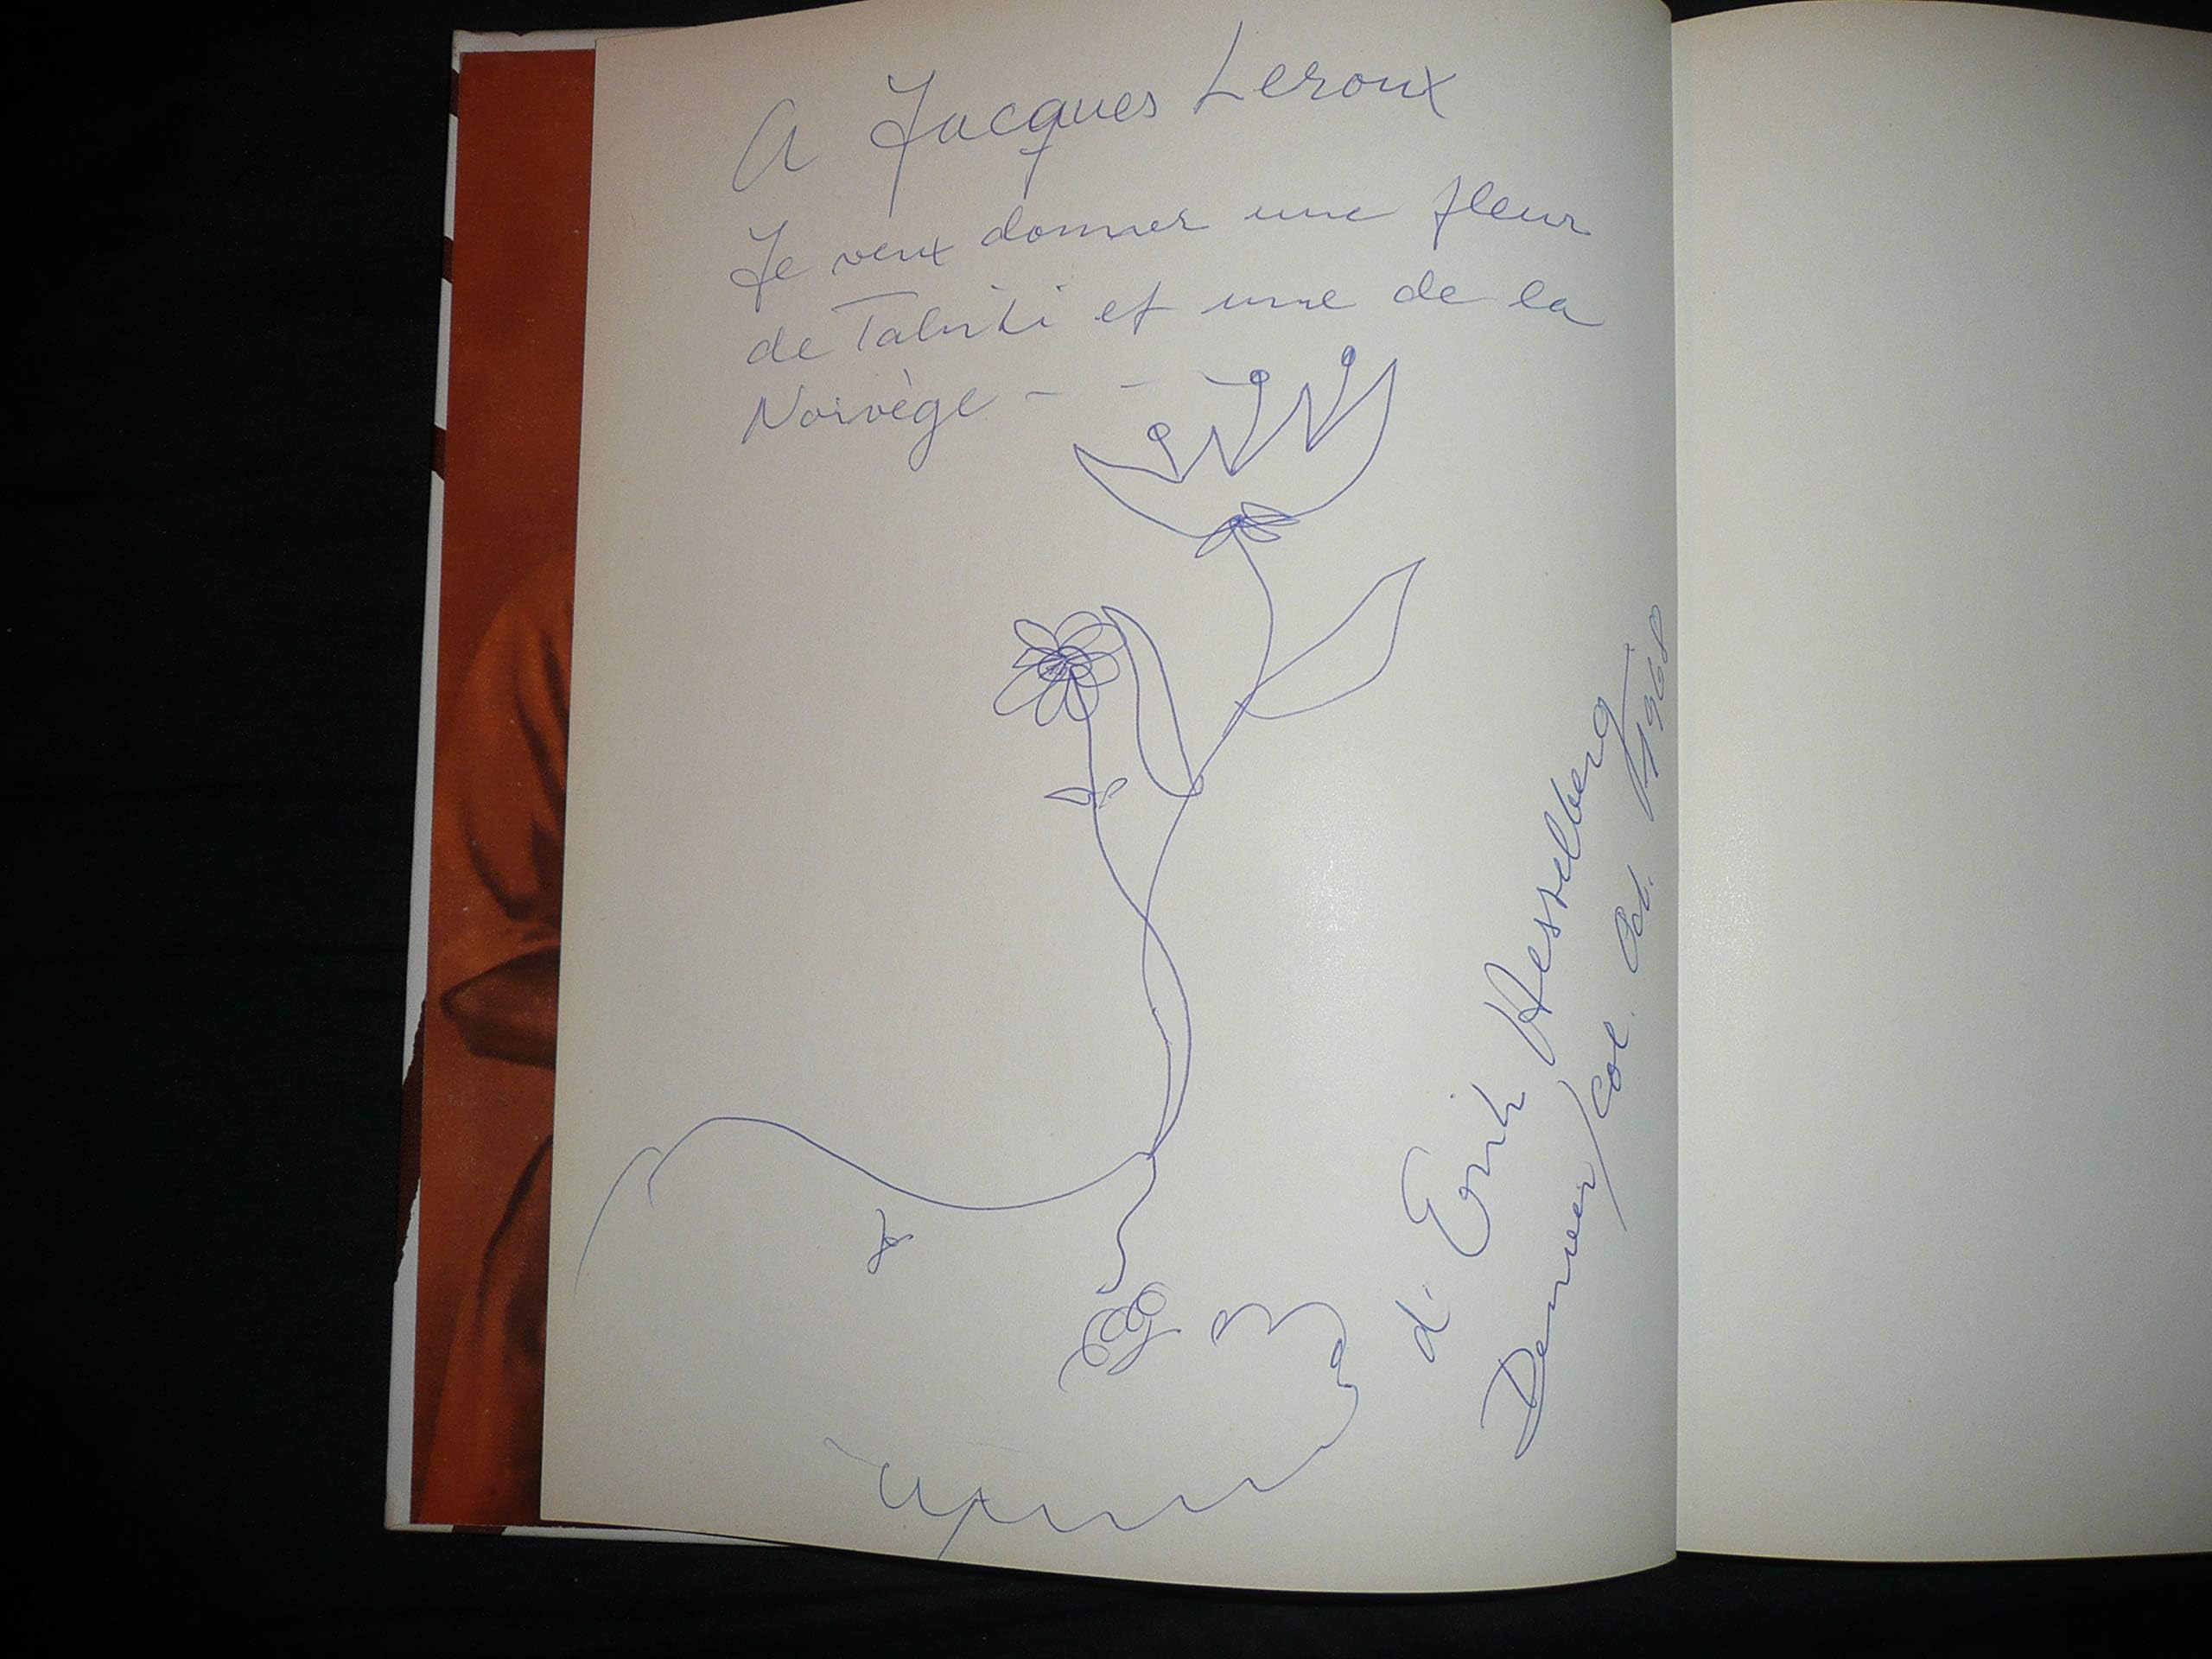 A Jacques Leroux
Je veux donner une fleur
de Tahiti et une de la
Norvège - -
d. Erik Hesselberg
Denver / Col. Oct. 1968